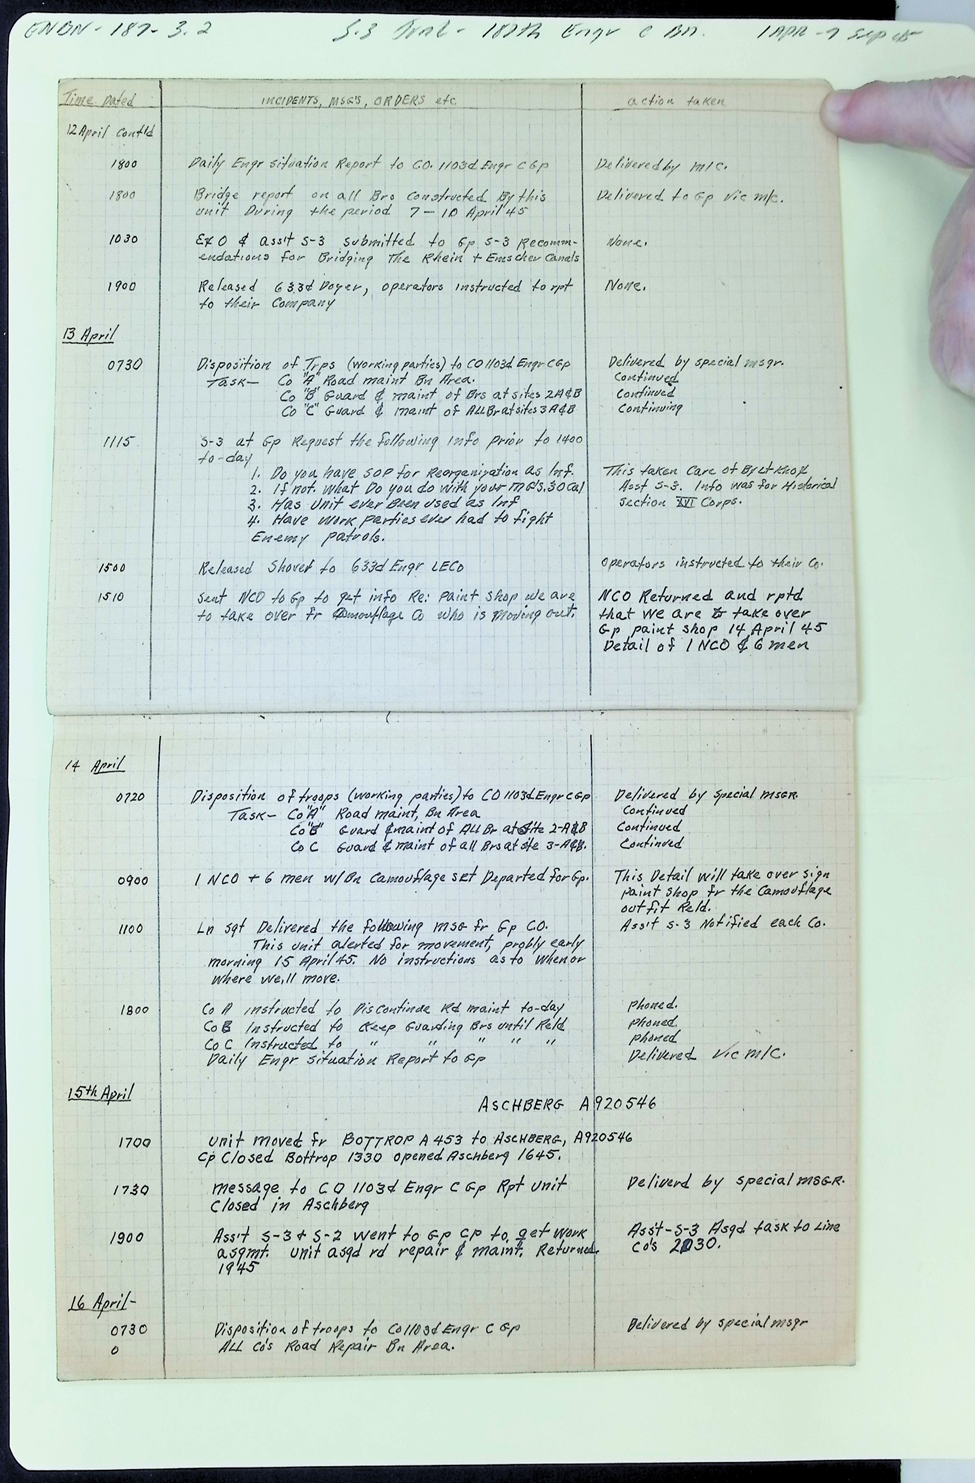 ENBN-187-3.2 S-3 Jrnl- 187th Engr C Bn. 1 APR-7 Sep 45
Time Dated INCIDENTS, MSG'S, ORDERS etc. action taken
12 April Cont'd
1800 Daily Engr Situation Report to CO. 1103d Engr C Gp Delivered by M/C.
1800 Bridge report on all Brs Constructed By this Delivered to Gp Vic M/C.
unit During the period 7-10 April 45
1030 Ex O & Ass't S-3 submitted to Gp S-3 Recomm- None.
endations for Bridging The Rhein + Emscher Canals
1900 Released 633d Dozer, operators instructed to rpt None.
to their Company
13 April
0730 Disposition of Trps (working parties) to CO 1103d Engr C Gp Delivered by special msgr.
Task- Co "A" Road maint Bn Area. Continued
Co "B" Guard & maint of Brs at sites 2A&B Continued
Co "C" Guard & maint of ALL Br at sites 3A&B Continuing
1115 S-3 at Gp Request the following info prior to 1400
to-day
1. Do you have SOP for Reorganization as Inf. This taken Care of By Lt
2. If not. What Do you do with your MG's.30 Cal Asst S-3. Info was for Historical
3. Has Unit ever Been used as Inf Section XVI Corps.
4. Have work parties ever had to fight
Enemy patrols.
1500 Released Shovel to 633d Engr LECo Operators instructed to their Co.
1510 Sent NCO to Gp to get info Re: Paint Shop we are NCO Returned and rptd
to take over fr Camouflage Co who is moving out. that we are to take over
Gp paint shop 14 April 45
Detail of 1 NCO & 6 men
14 April
0720 Disposition of troops (working parties) to CO 1103d Engr C Gp Delivered by special msgr
Task- Co "A" Road maint, Bn Area Continued
Co "B" Guard & maint of ALL Br at site 2-A&B Continued
Co C Guard & maint of all Brs at site 3-A&B. Continued
0900 1 NCO + 6 men w/Bn Camouflage set Departed for Gp. This Detail will take over sign
paint shop fr the Camouflage
outfit Reld.
1100 Ln sgt Delivered the following msg fr Gp CO. Ass't S-3 Notified each Co.
This unit alerted for movement, probly early
morning 15 April 45. No instructions as to when or
where we'll move.
1800 Co A instructed to Discontinue Rd maint to-day phoned.
Co B Instructed to Keep Guarding Brs until Reld phoned
Co C Instructed to " " " " " phoned
Daily Engr Situation Report to Gp Delivered Vic M/C.
15th April
ASCHBERG A920546
1700 Unit moved fr BOTTROP A 453 to ASCHBERG, A920546
Cp Closed Bottrop 1330 opened Aschberg 1645.
1730 message to CO 1103d Engr C Gp Rpt Unit Deliverd by special MSGR.
Closed in Aschberg
1900 Ass't S-3 + S-2 went to Gp CP to get work Ass't-S-3 Asgd task to Line
asgmt. Unit asgd rd repair & maint. Returned Co's 2030.
1945
16 April-
0730 Disposition of troops to Co 1103d Engr C Gp Delivered by special msgr
0 ALL Co's Road Repair Bn Area.